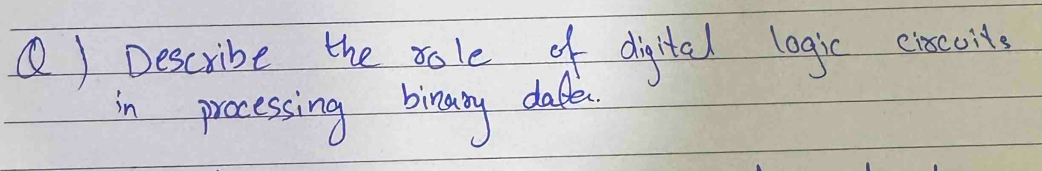 Q) Describe the role of digital logic circuits
in processing binary data.